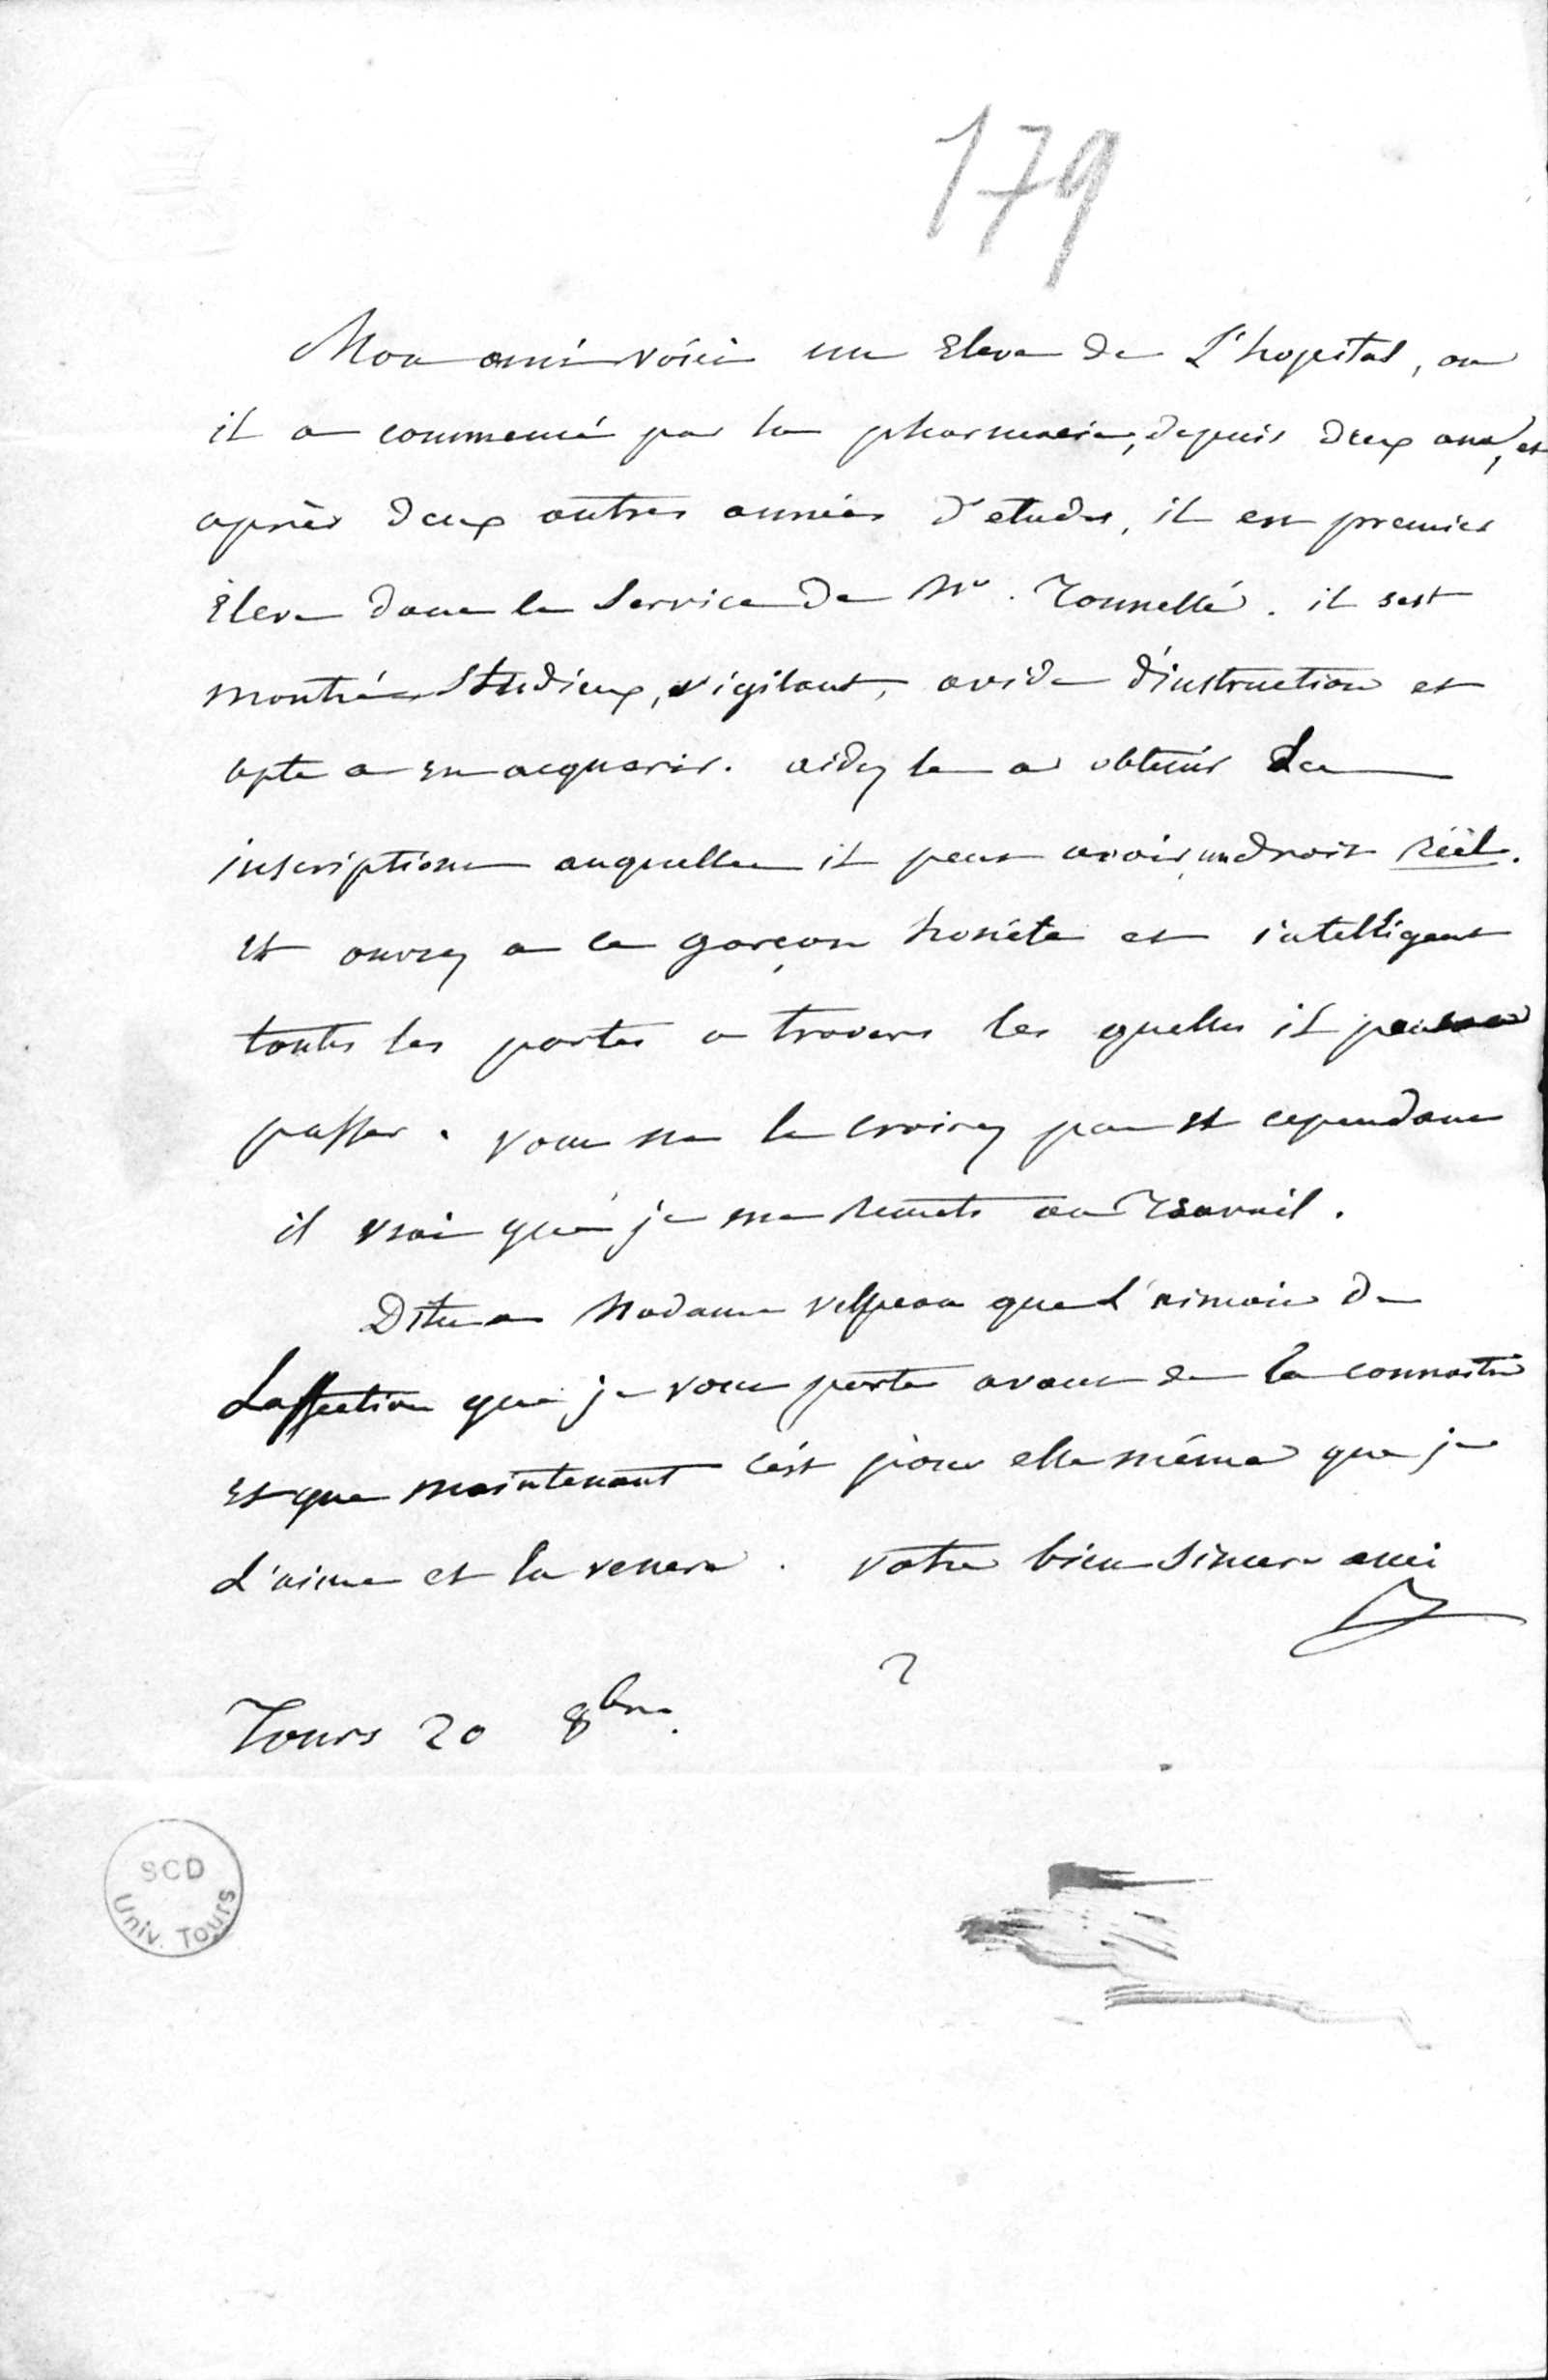 179
Mon ami voici un Eleve de L'hopital, ou
il a commencé par la pharmacie, depuis deux ans, et
après deux autres années d'etudes, il est premier
Eleve dans le Service de Mr. Tonnellé. il sest
montré Studieux, vigilant, avide d'instruction et
apte a en acquerir. aidez le a obtenir Les
inscriptions auquelles il peut avoir un droit réël.
Et ouvrez a ce garçon honête et intelligent
toutes les portes a travers les quelles il
passer. vous ne le croirez pas et cependant
il vrai que je me remets au Travail.
Dites a Madame velpeau que L'aimais de
Laffection que je vous porte avant de la connaitre
Et que maintenant c'est pour elle même que je
L'aime et la venere. votre bien sincere ami
Tours 20 8bre.
SCD
Univ. Tours